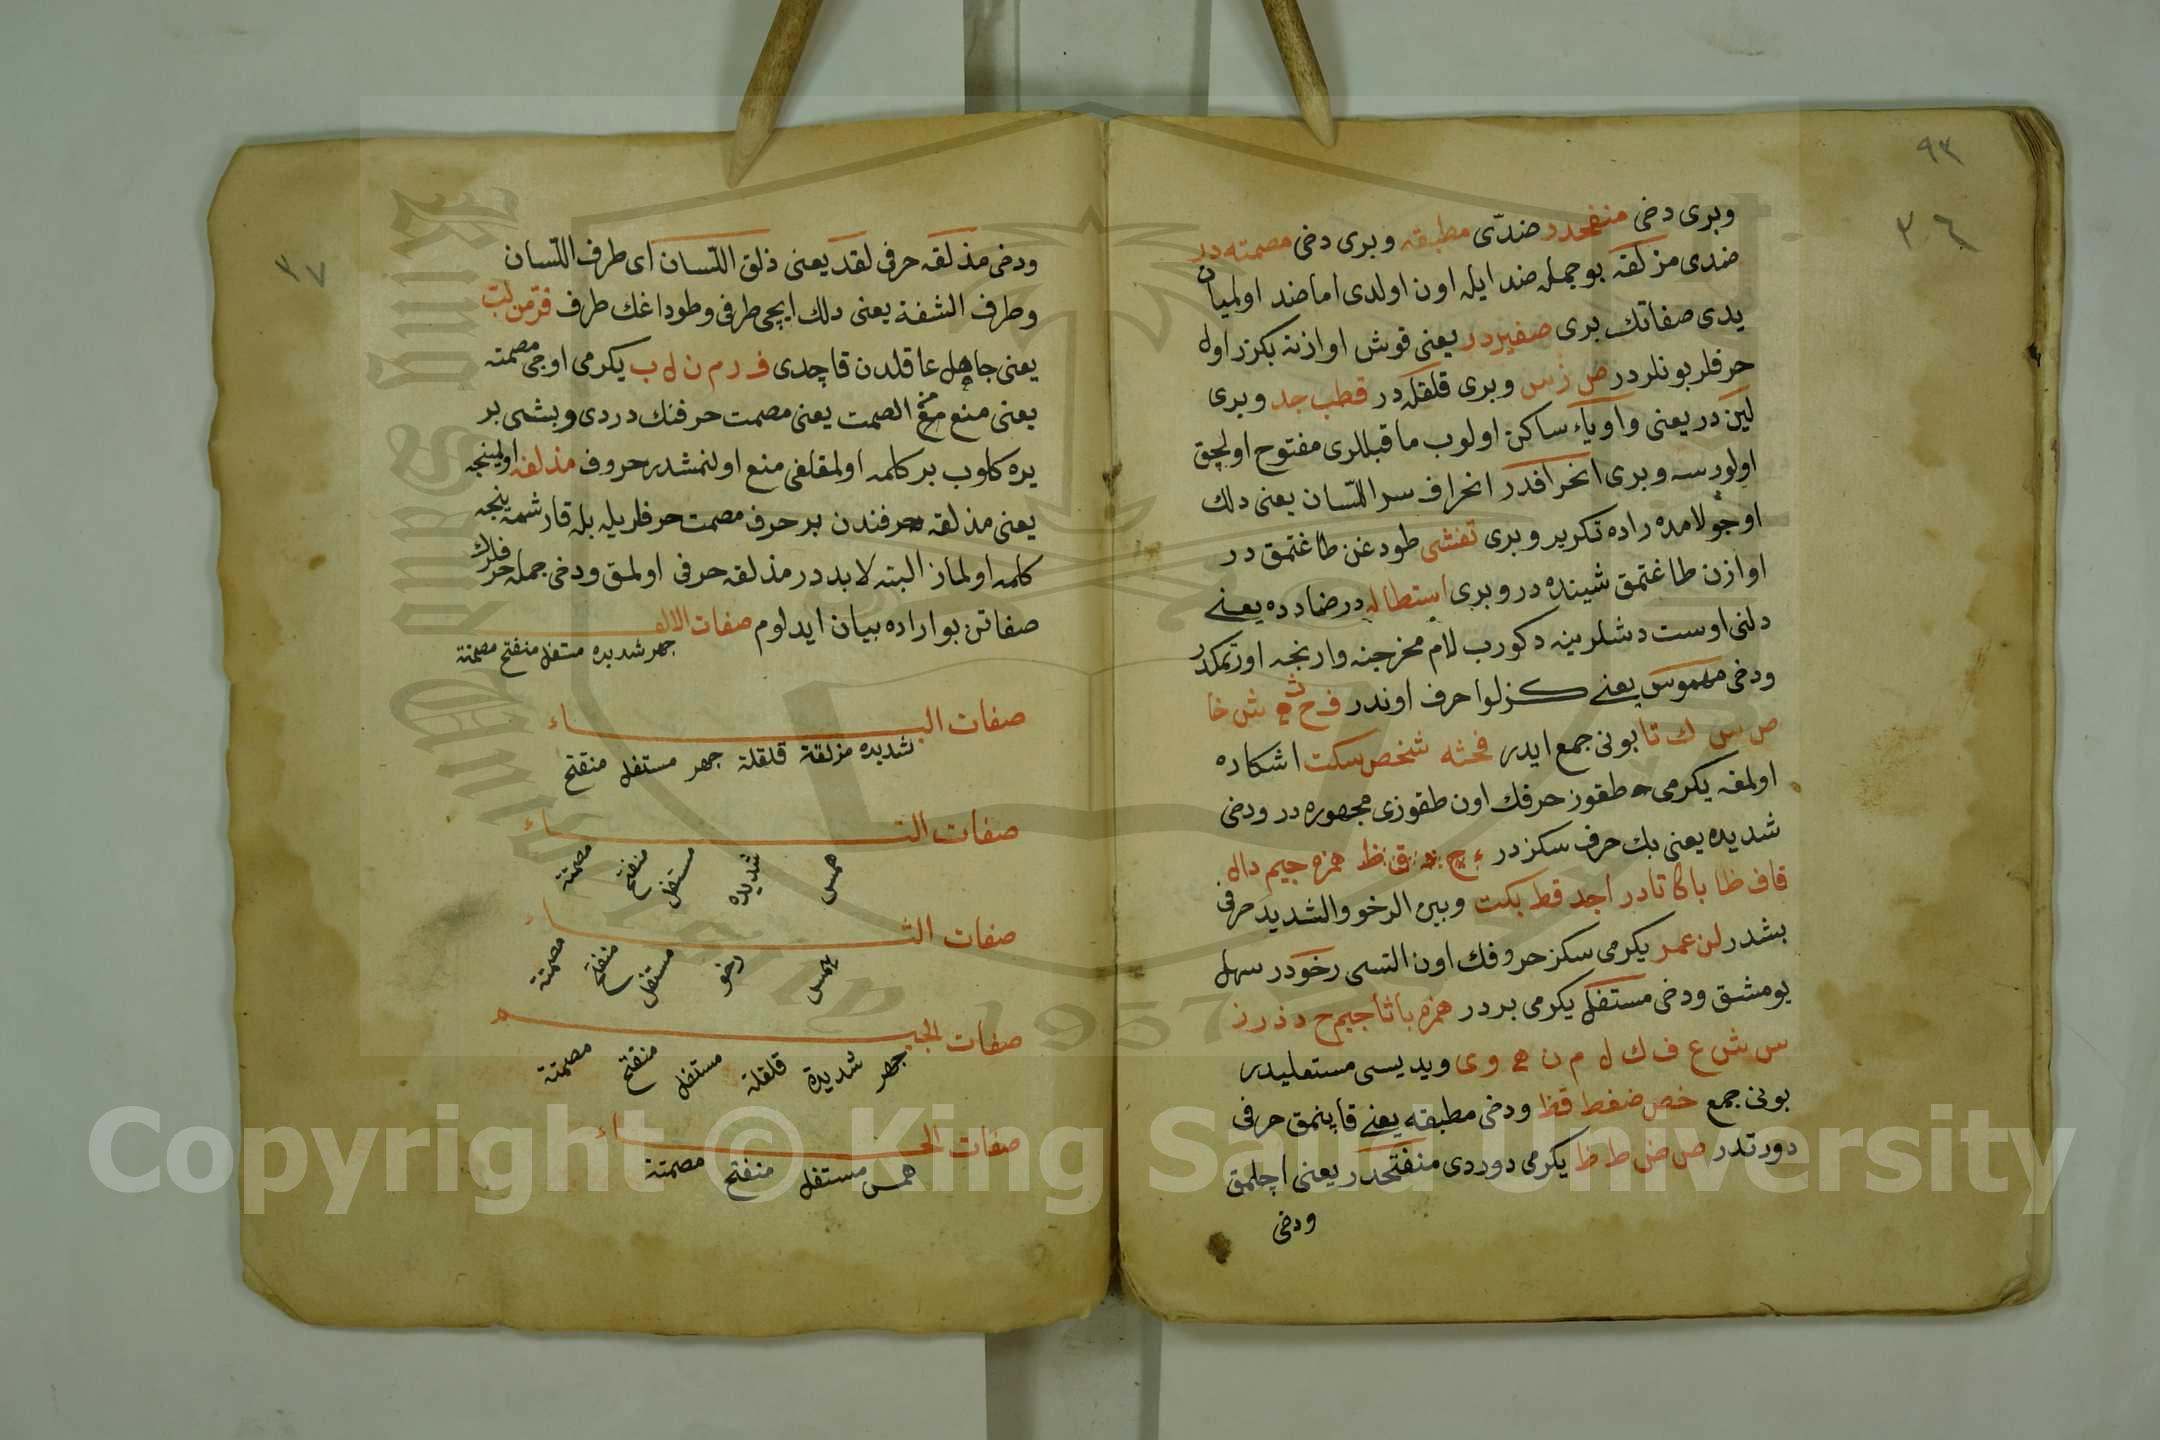 ٩٣
٣٦
وبرى دخى منفتحدر ضدّى مطبقه وبرى دخى مصمته در
ضدى مزلقه بو جمله ضد ايله اون اولدى اما ضد اولميان
يدى صفاتك برى صفيردر يعنى قوش اوازنه بكزر اول
حرفلر بونلردر ص ز س وبرى قلقله در قطب جد وبرى
لين در يعنى واو ياء ساكن اولوب ماقبللرى مفتوح اولجق
اولورسه وبرى انحرافدر انحراف سر اللسان يعنى دلك
اوجو لامده راده تكرير وبرى تفشى طودغن طاغتمق در
اوازن طاغتمق شينده در وبرى استطاله در ضادده يعنے
دلنى اوست دشلرينه دكورب لام مخرجنه وارنجه اورتمكدر
ودخى مهموس يعنے كزلو حرف اوندر ف ح ث ه ش خا
ص س ك تا بونى جمع ايدر فحثه شخص سكت اشكاده
اولمغه يكرمى طقوز حرفك اون طقوزى مجهوره در ودخى
شديده يعنى بك حرف سكزدر ء ج ق ظ همزه جيم دال
قاف ظا با كا تادر اجد قط بكت وبين الرخو والشديد حرفى
بشدر لن عمر يكرمى سكز حروفك اون التسى رخودر سهل
يومشق ودخى مستفل يكرمى بردر همزه با تا ثا جيم ح د ذ ر ز
س ش ع ف ك ل م ن ه و ى ويديسى مستعليدر
بونى جمع خص ضغط قظ ودخى مطبقه يعنے قاپنمق حرفى
دورتدر ص ض ط ظ يكرمى دوردى منفتحدر يعنى اچلمق
ودخى
٣٧
ودخى مذلقه حرفى لقد يعنى ذلق اللسان اى طرف اللسان
وطرف الشفة يعنى دلك ايچى طرفى وطوداغك طرف فرّ من لبّ
يعنى جاهل عاقلدن قاچدى ف ر م ن ل ب يكرمى اوچى مصمته
يعنى منع الصمت يعنى مصمت حرفنك دردى وبشى بر
يره كلوب بر كلمه اولمقلغى منع اولنمشدر حروف مذلقه اولمينجه
يعنى مذلقه حرفندن بر حرف مصمت حرفلريله بله قارشمينجه
كلمه اولماز البته لابددر مذلقه حرفى اولمق ودخى جمله حرفلرك
صفاتن بو اراده بيان ايدلوم صفات الالف
جهر شديده مستفل منفتح مصمتة
صفات الباء
شديده مزلقة قلقلة جهر مستفل منفتح
صفات التاء
همس شديده مستفل منفتح مصمتة
صفات الثاء
همس رخو مستفل منفتح مصمتة
صفات الجيم
جهر شديدة قلقلة مستفل منفتح مصمتة
صفات الحاء
همس مستفل منفتح مصمتة
King Saud University
1957
Copyright © King Saud University